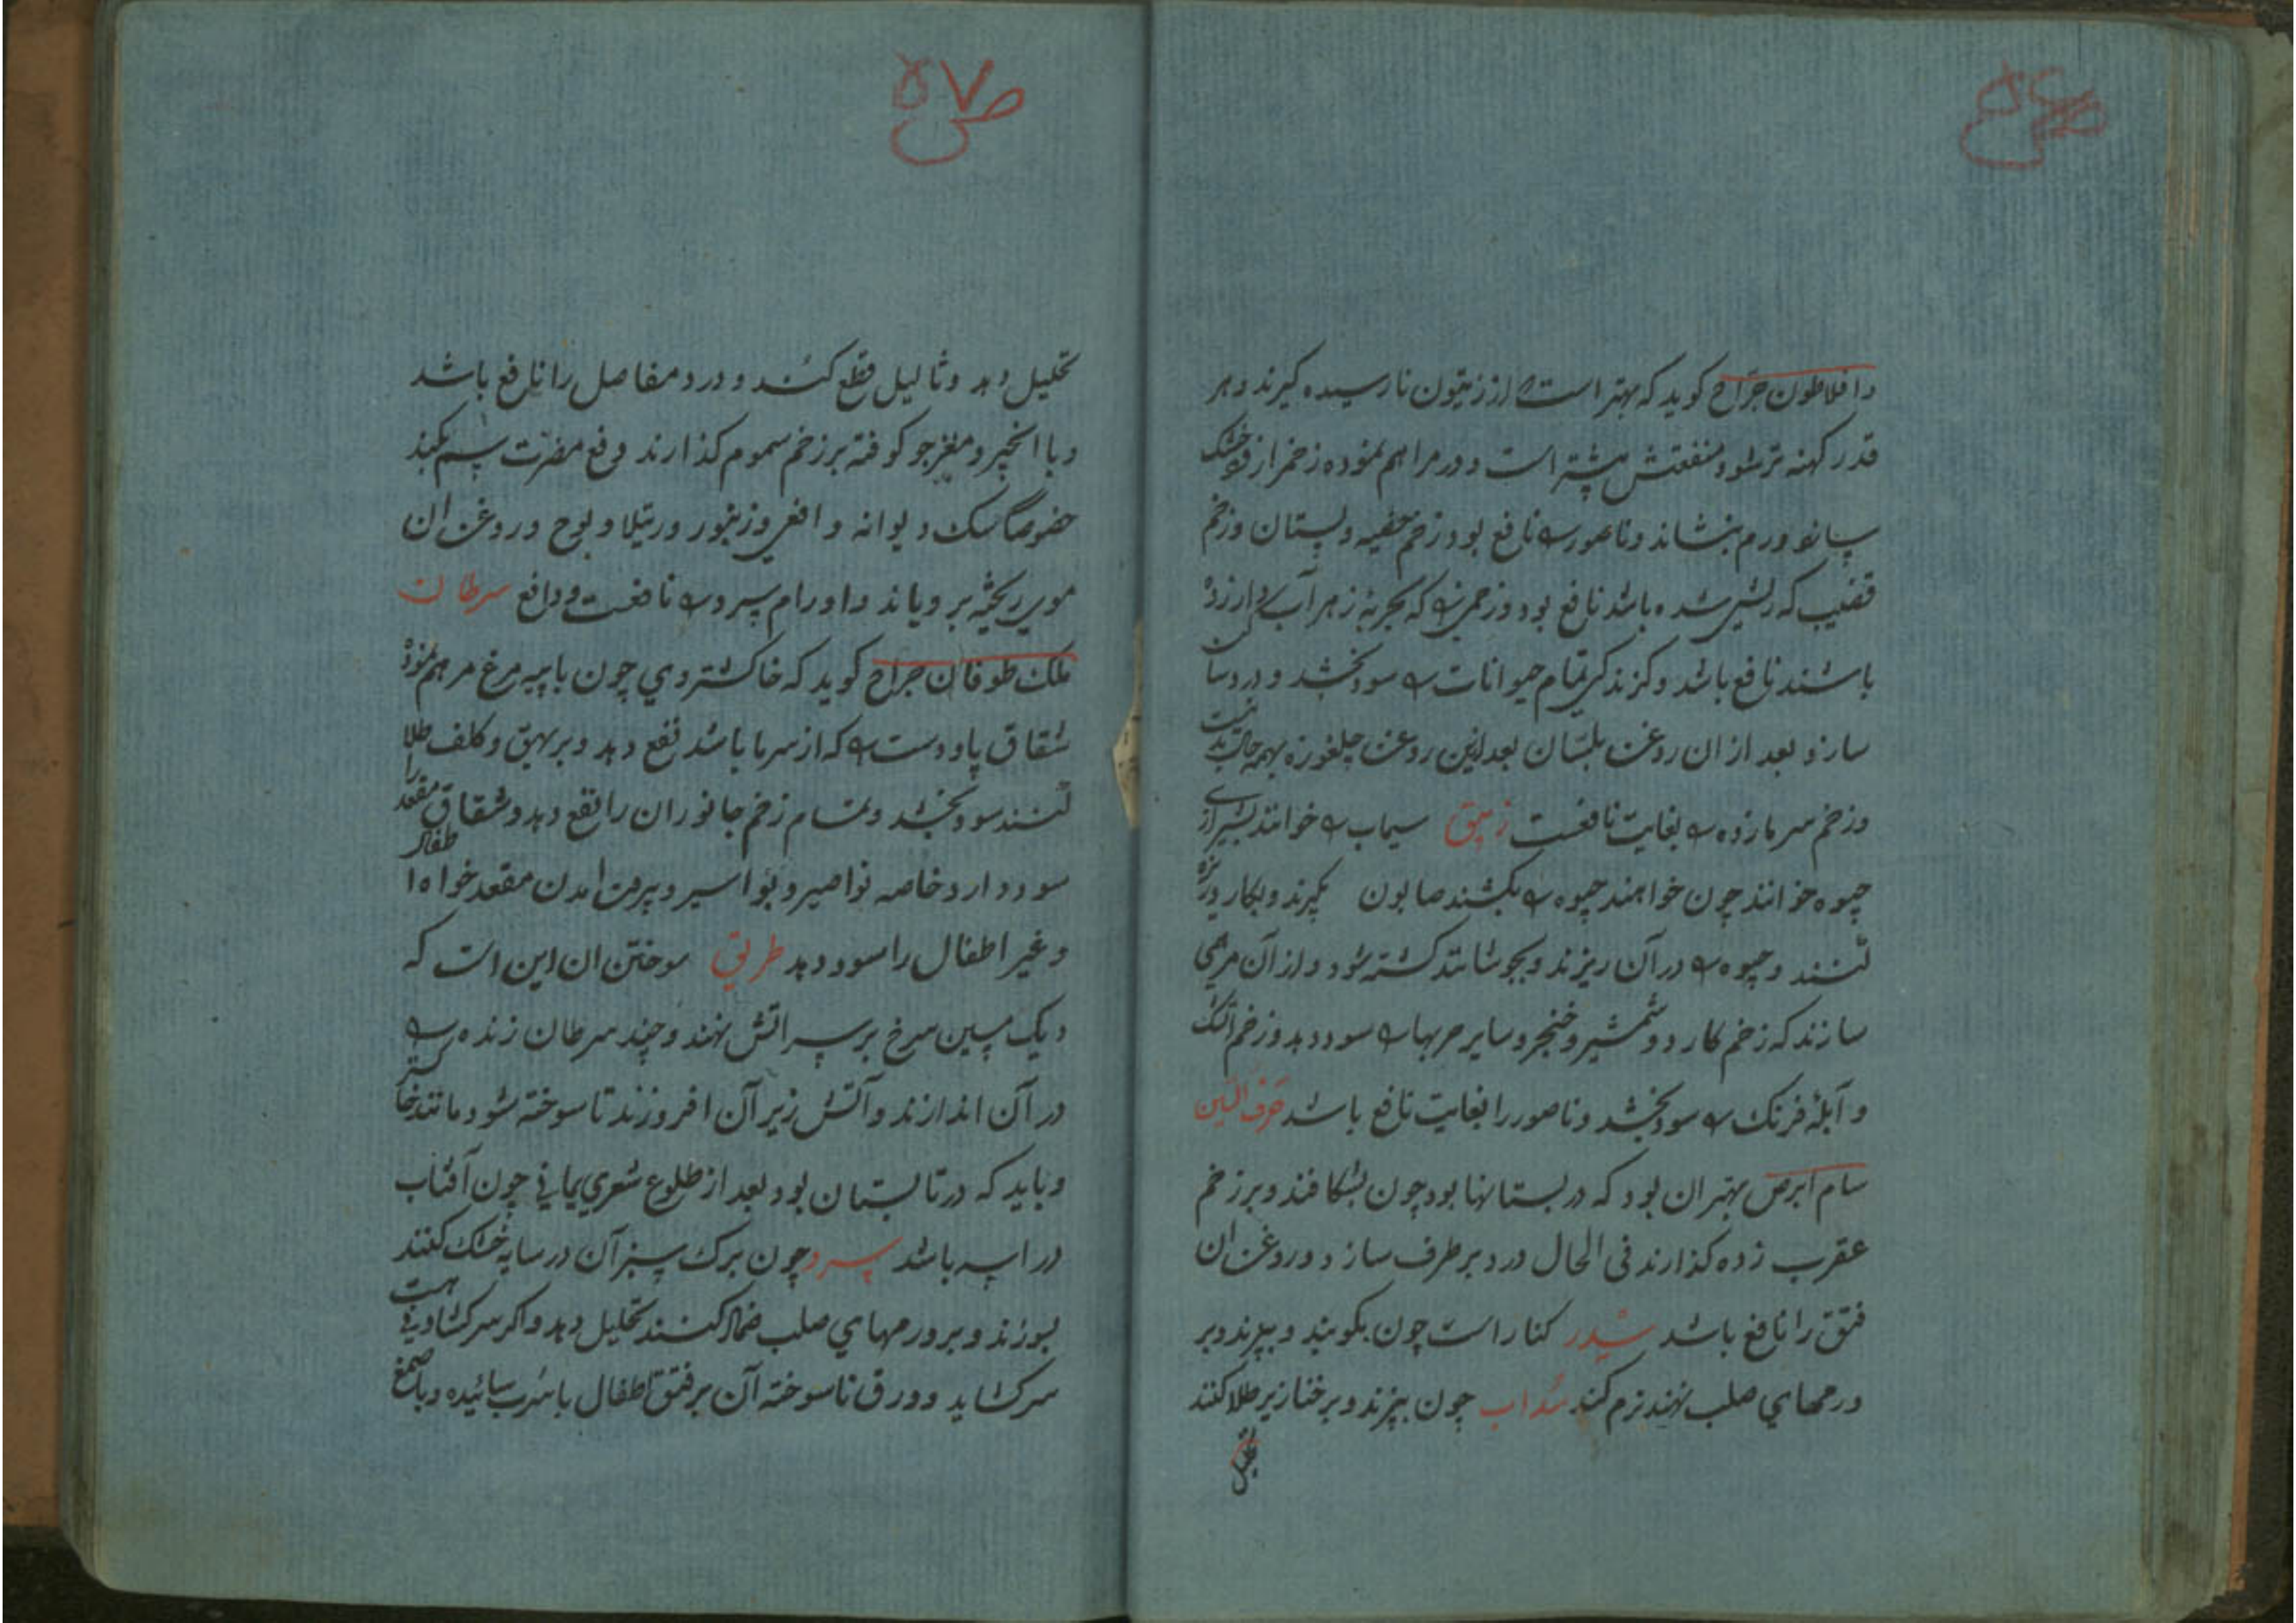 ص ۵۶
وافلاطون جراح کوید که بهتر است از زیتون نارسیده کیرند و هر
قدر کهنه تر شود منفعتش بیشتر است و در مراهم نموده زخم را از خشک
ورم بنشاند و ناصور را نافع بود و زخم خصیه و پستان و زخم
قضیب که ریش شده باشد نافع بود و که بزهر آب
باشند نافع باشد و کزندکی تمام حیوانات را سود بخشد و در
سازد بعد از ان روغن بلسان بعد ازین روغن چلغوزه بهمه
وزخم سرمازده را بغایت نافعست زیبق سیماب را خوانند
جیوه خوانند چون خواهند جیوه را بکشند صابون بکیرند و بکار
کنند و جیوه را در آن ریزند و بجوشانند کشته شود و از آن مرهمی
سازند که زخم کارد و شمشیر و خنجر و سایر حربها را سود دهد و زخم
و آبلۀ فرنک را سود بخشد و ناصور را بغایت نافع باشد حرف السین
سام ابرص بهتر ان بود که در بستانها بود چون بشکافند و بر زخم
عقرب زده کذارند فی الحال درد بر طرف سازد و روغن ان
فتق را نافع باشد سدر کنار است چون بکوبند و بپزند و بر
ورمهای صلب نهند نرم کند سداب چون بپزند و بر خنازیر طلا کنند
تحلیل
ص ۵۷
تحلیل دهد و ثالیل قطع کند و درد مفاصل را نافع باشد
و با انجیر و مغز جو کوفته بر زخم سموم کذارند دفع مضرت سم بکند
خصوصا سک دیوانه و افعی و زنبور و رتیلا و روغن ان
موی ریخته برویاند و اورام را نافعست و دافع سرطان
ملک طوفان جراح کوید که خاکستر وی چون با پیه مرغ مرهم نموده
شقاق پا و دست را که از سرما باشد نفع دهد و بر بهق و کلف طلا
کنند سود بخشد و تمام زخم جانوران را نفع دهد و شقاق مقعد را
سود دارد خاصه نواصیر و بواسیر و بیرون امدن مقعد خواه اطفال
و غیر اطفال را سود دهد طریق سوختن ان این است که
دیک مسین سرخ بر سر اتش نهند و چند سرطان زنده را
در آن اندازند و آتش زیر آن افروزند تا سوخته شود مانند خاکستر
و باید که در تابستان بود بعد از طلوع شعری یمانی چون آفتاب
در اسد باشد سرو چون برک سبز آن در سایه خشک کنند
بسوزند و بر ورمهای صلب ضماد کنند تحلیل دهد و اکر سر
سر کشاید و ورق ناسوخته آن بر فتق اطفال با شراب سائیده و با صمغ